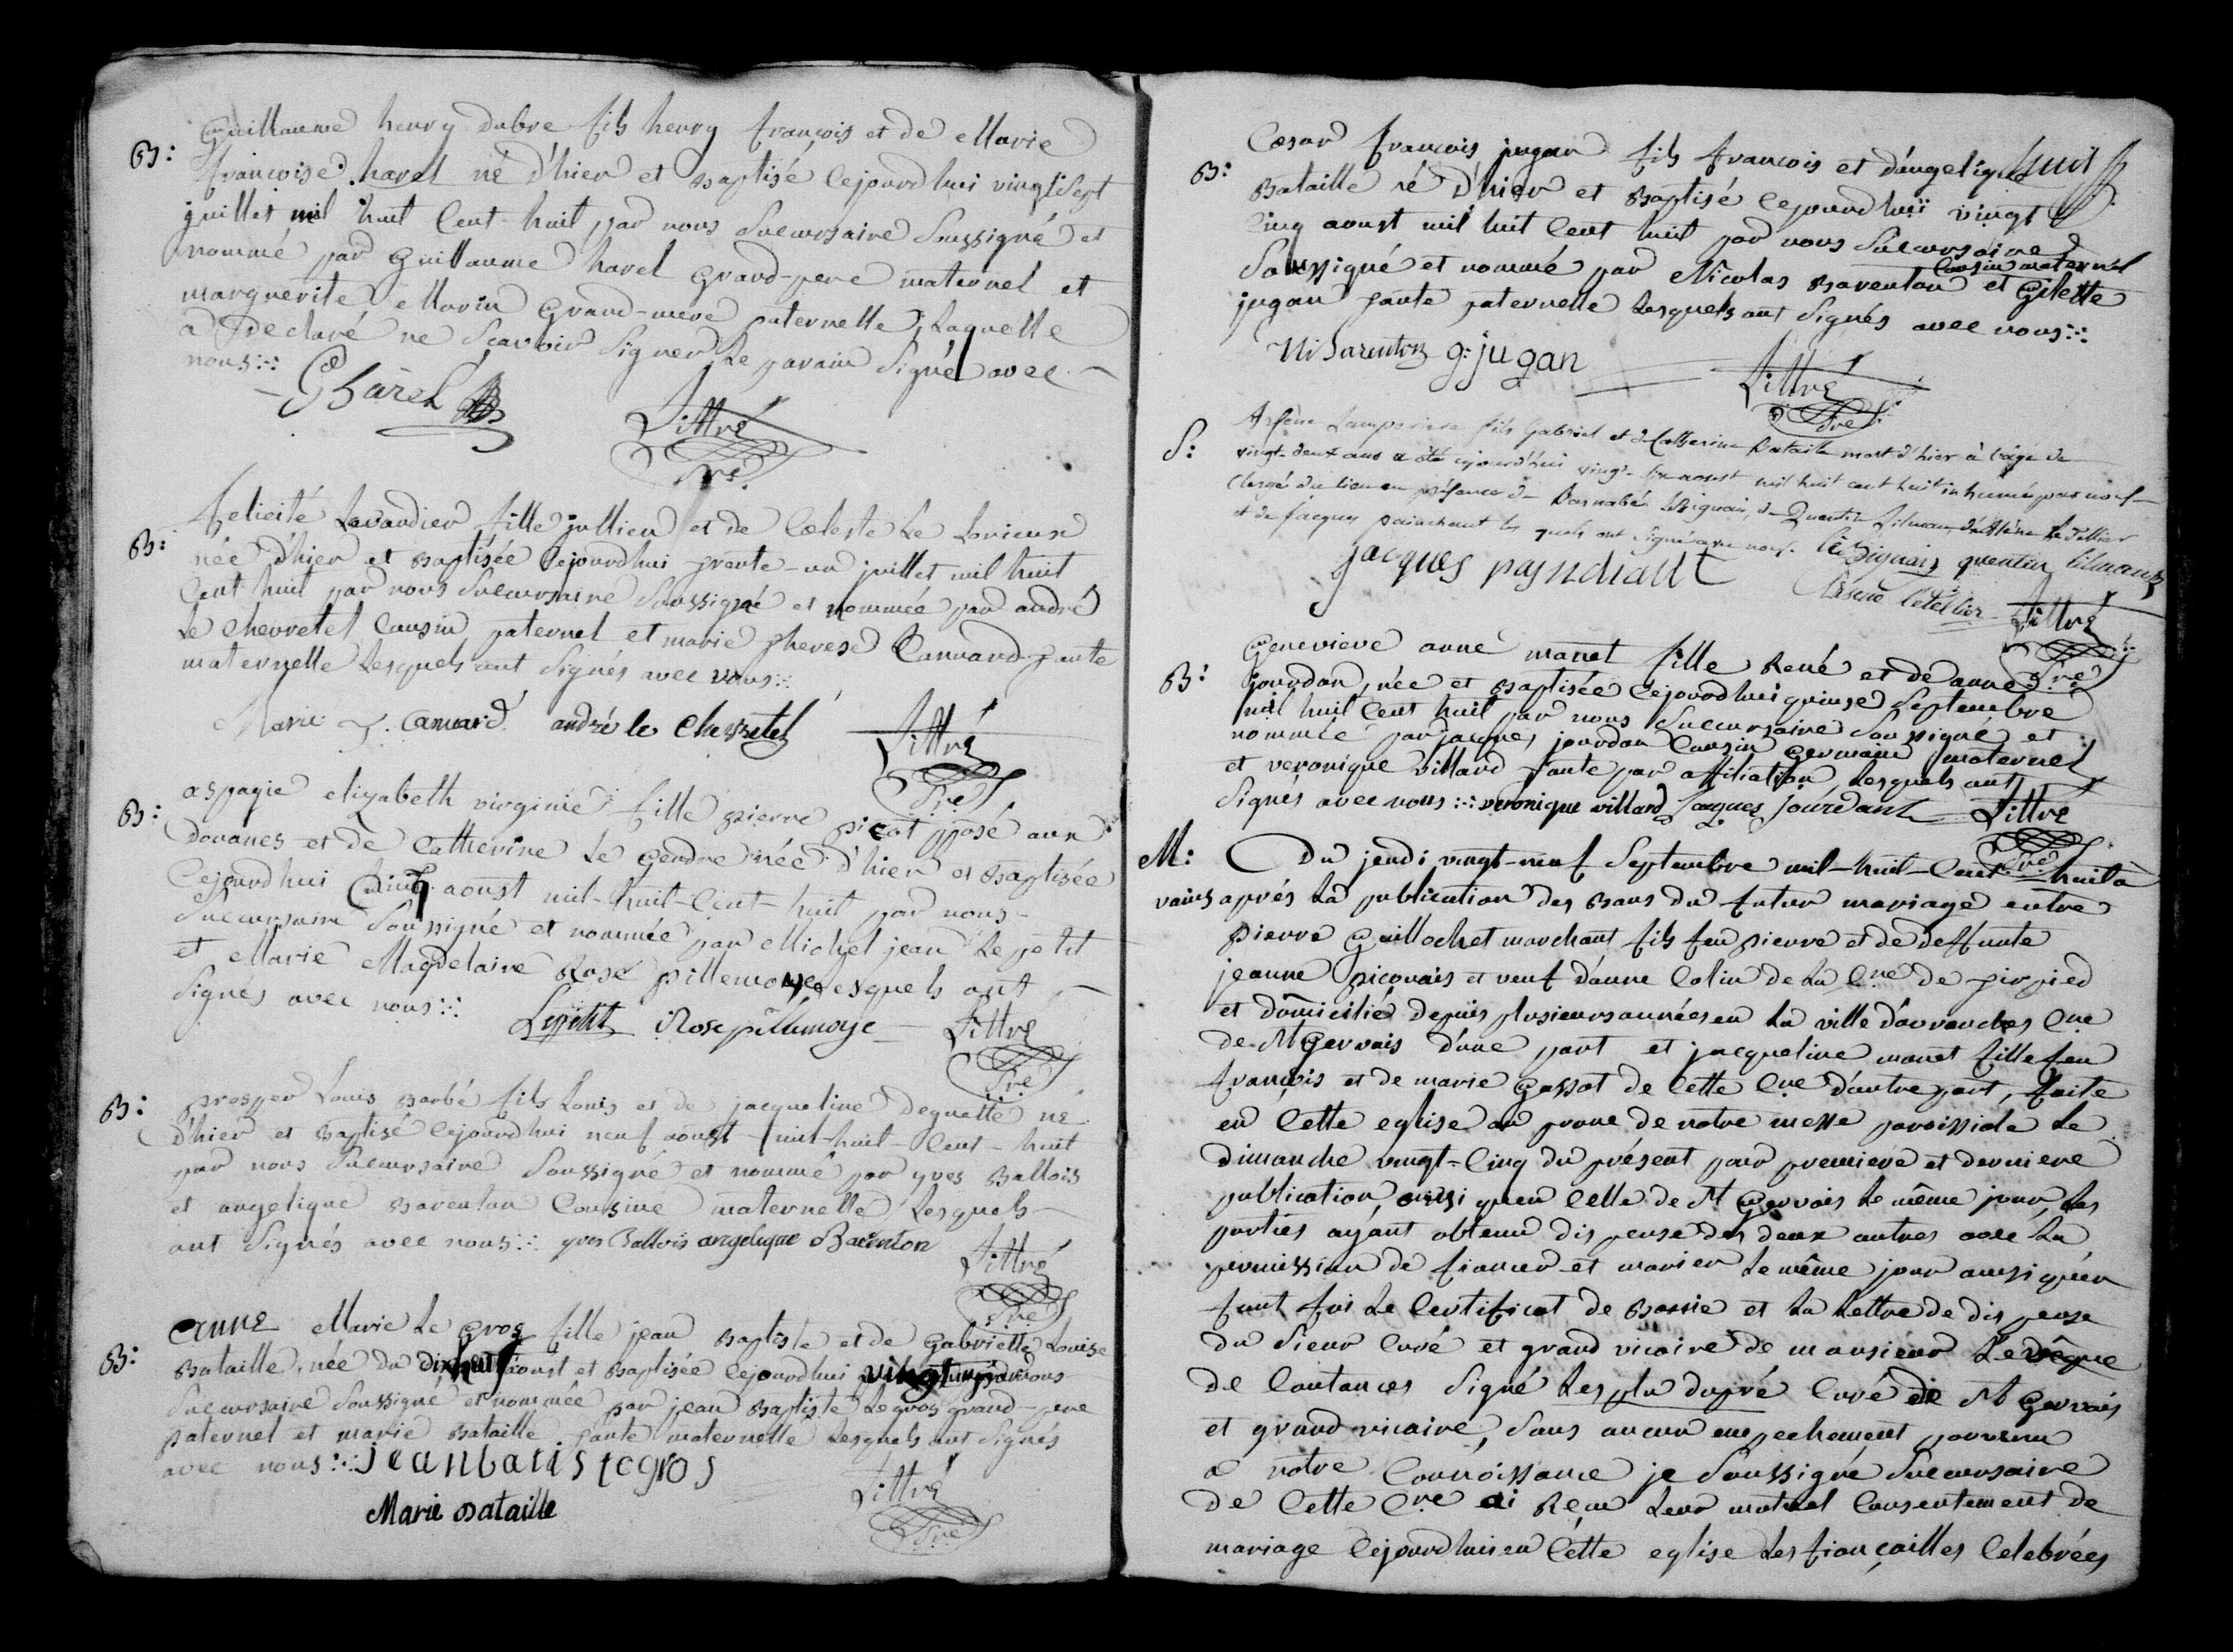 B: Guillaume henry dubre fils henry françois et de Marie
françoise havel né d'hier et Baptisé cejourdhui vingt Sept
juillet mil huit Cent huit par nous Succursaire Soussigné et
nommé par Guillaume havel grand-pere maternel et
marguerite Marin grand-mere paternelle, Laquelle
a Declaré ne Scavoir Signer Le parain Signé avec
nous
G harel
Littré
Pre
B: felicité Lavandier fille jullien et de Celeste Le Lorieux
née d'hier et Baptisée cejourdhui trente-un juillet mil huit
Cent huit par nous Succursaire Soussigné et nommée par andré
Le Chevretel Cousin paternel et marie therese Canuard tante
maternelle Lesquels ont Signés avec nous
Marie T. Canuard andré le Chevretel Littré
Pre
B: aspagie elizabeth virginie fille pierre picot pposé aux
Douanes et de Catherine Le Gendre née d'hier et Baptisée
Cejourdhui Cinq aoust mil-huit-Cent-huit par nous
Succursaire Soussigné et nommée par Michel jean Le petit
et Marie Magdelaine Rose pillemoye Lesquels ont
Signés avec nous
Lepetit Rose pillemoye Littré
Pre
B: prosper Louis Barbé fils Louis et de jacqueline Deguette né
d'hier et Baptisé Cejourdhui neuf aoust mil-huit-Cent-huit
par nous Succursaire Soussigné et nommé par yves Ballois
et angelique Barenton Cousine maternelle Lesquels
ont Signés avec nous yves Ballois angelique Barenton Littré
Pre
B: anne Marie Le Gros fille jean Baptiste et de Gabrielle Louise
Bataille née du dixhuit aoust et Baptisée Cejourdhui vingt un par nous
Succursaire Soussigné et nommée par jean Baptiste Le gros grand-pere
paternel et marie Bataille tante maternelle Lesquels ont Signés
avec nous jean batis te gros
Marie Bataille Littré
Pre
huit
B: Cesar françois jugan fils françois et d'angelique
Bataille né d'hier et Baptisé Cejourdhui vingt
Cinq aoust mil huit Cent huit par nous Succursaire
Soussigné et nommé par Nicolas Barenton cousin maternel et Gilette
jugan tante paternelle Lesquels ont Signés avec nous
Ni Barenton g. jugan Littré
Pre
S: Arsène Lamperiere fils Gabriel et de Catherine Bataille mort d'hier à l'age de
vingt-deux ans a été aujourd'hui vingt-six aoust mil huit cent huit inhumé par nous
Clergé du lieu en présence de Barnabé Lesignais, de Quentin Lilman, d'Arsène Le Tellier
et de Jacques painchaut les quels ont signés avec nous. Lesignais quentin lilman
jacques paynchaut Arsène letellier Littré
Pre
B: Genevieve anne manet fille René et de anne
jourdan, née et Baptisée Cejourdhui quinze Septembre
mil huit Cent huit par nous Succursaire Soussigné et
nommée par jacques jourdan Cousin germain maternel
et veronique villard tante par affiliation Lesquels ont
Signés avec nous veronique villard Jaques Jourdant Littré
Pre
M: Du jeudi vingt-neuf Septembre mil-huit-Cent-huit
après La publication des Bans du futur mariage entre
pierre Guillochet marchant fils feu pierre et de deffunte
jeanne picouais et veuf d'anne Colin de La Cne de pirpied
et domicilié depuis plusieurs années en La ville d'avranches Cne
de St Gervais d'une part et jacqueline manet fille feu
françois et de marie Gassot de Cette Cne d'autre part, faite
en Cette eglise au prone de notre messe paroissiale Le
Dimanche vingt-Cinq du présent pour premiere et derniere
publication, ainsi qu'en Celle de St Gervais Le même jour, Les
parties ayant obtenu dispense des deux autres avec La
permission de fiancer et marier Le même jour ainsi qu'en
font foi Le Certificat de Bannie et La Lettre de dispense
du Sieur Curé et grand vicaire de monsieur Levêque
de Coutances Signé Lesplu dupré Curé de St Gervais
et grand vicaire, Sans aucun empechement parvenu
a notre Connoissance je Soussigné Succursaire
de Cette Cne ai Reçu Leur mutuel Consentement de
mariage Cejourdhui en Cette eglise Les fiançailles Celebrées